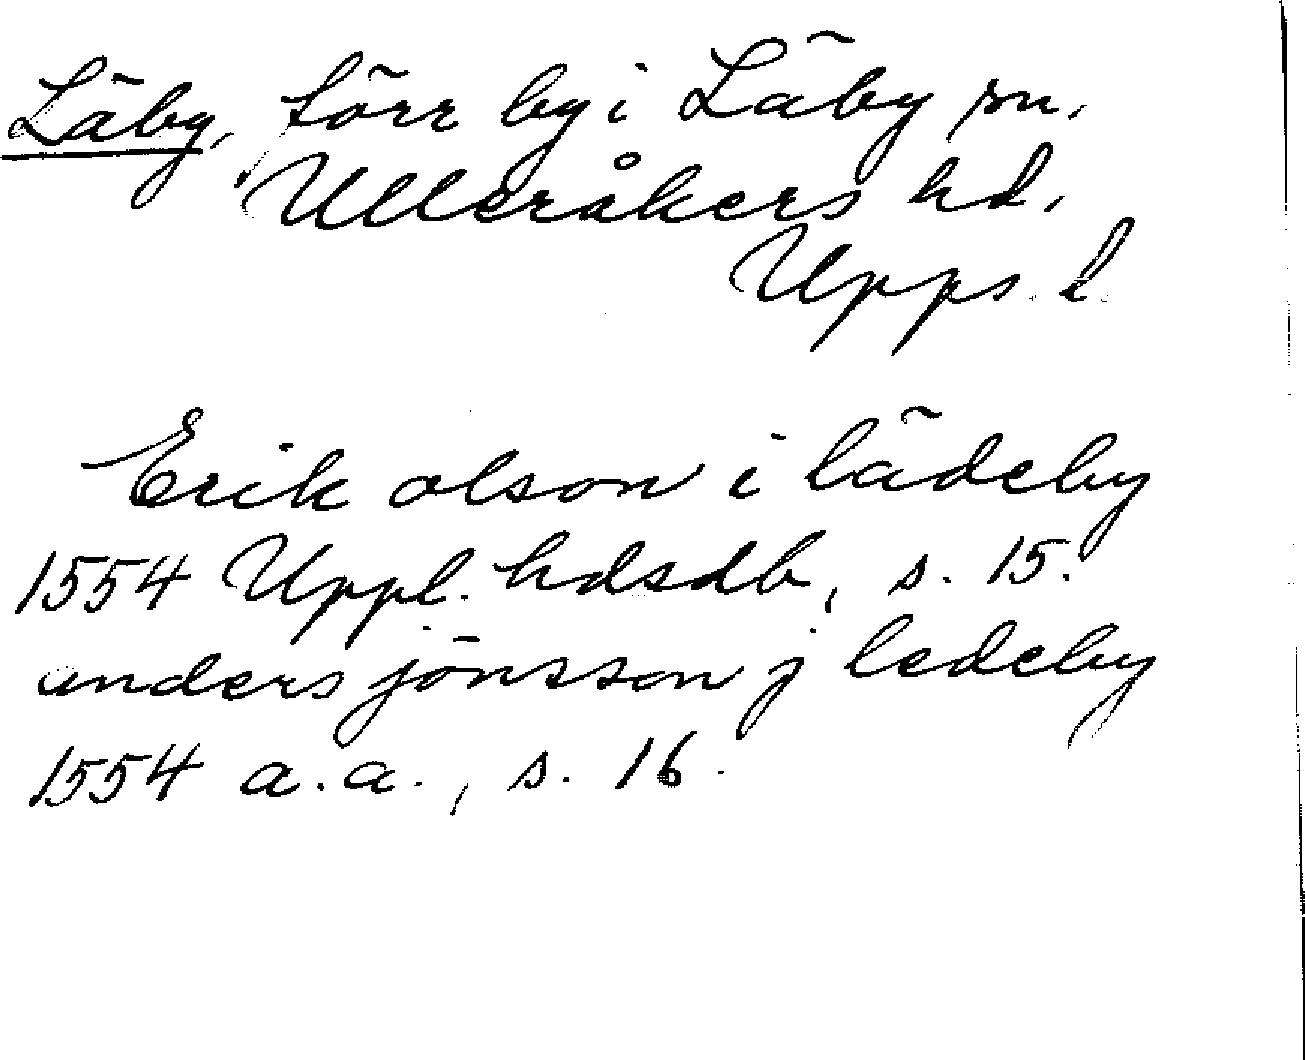 Läby, förr by i Läby sn.
Ulleråkers hd.
Upps. l.
Erik olson i lädeby
1554 Uppl. hdsdb, s. 15.
anders jönsson j ledeby
1554 a.a., s. 16.